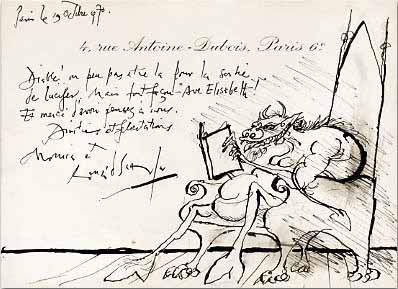 Paris le 19 Octobre
4, rue Antoine-Dubois, Paris 6e
Diable! on peu pas etre la pour la sortie
de Lucifer, Mais tout façon - Ave Elisabeth!
Et merci d'avoir pensez à nous.
Amitiés et félicitations
Monica et
Ronald Searle